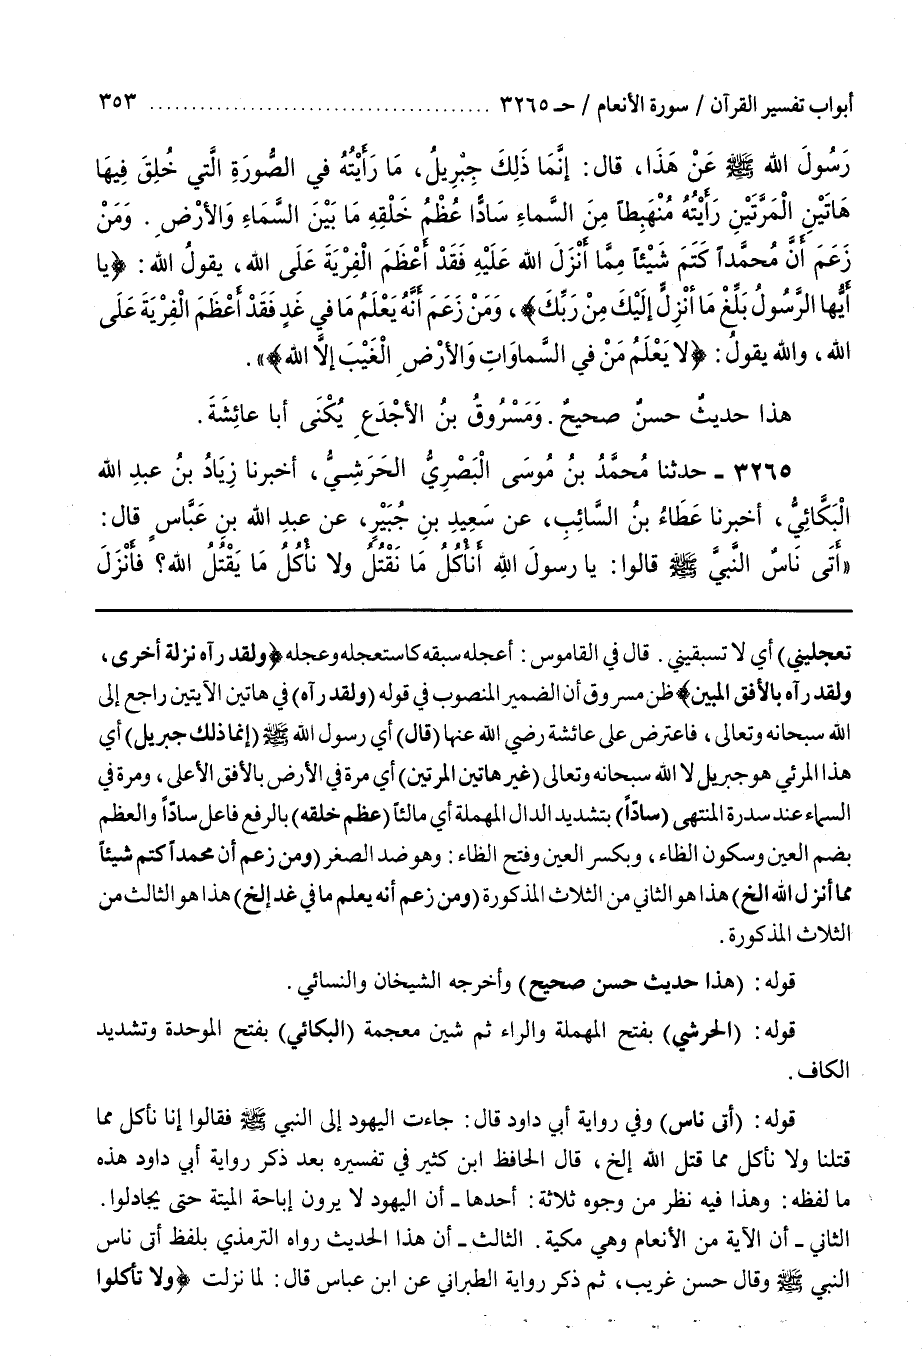 أبواب تفسير القرآن / سورة الأنعام / حـ ٣٢٦٥ ........................................ ٣٥٣
رَسُولَ الله ﷺ عَنْ هَذَا، قال: إنَّمَا ذَلِكَ جِبْرِيلُ، مَا رَأَيْتُهُ في الصُّورَةِ الَّتي خُلِقَ فِيهَا
هَاتَيْنِ الْمَرَّتَيْنِ رَأَيْتُهُ مُنْهَبِطاً مِنَ السَّماءِ سَادًّا عُظْمُ خَلْقِهِ مَا بَيْنَ السَّمَاءِ وَالأرْضِ. وَمَنْ
زَعَمَ أنَّ مُحمَّداً كَتَمَ شَيْئاً مِمَّا أنْزَلَ الله عَلَيْهِ فَقَدْ أعْظَمَ الْفِرْيَةَ عَلَى الله، يقولُ الله: ﴿يا
أيُّها الرَّسُولُ بَلِّغْ مَا أنْزِلَ إلَيْكَ مِنْ رَبِّكَ﴾، وَمَنْ زَعَمَ أنَّهُ يَعْلَمُ مَا في غَدٍ فَقَدْ أعْظَمَ الْفِرْيَةَ عَلَى
الله، والله يقولُ: ﴿لا يَعْلَمُ مَنْ في السَّماوَاتِ وَالأرْضِ الْغَيْبَ إلاَّ الله﴾».
هذا حديثٌ حسنٌ صحيحٌ. وَمَسْرُوقُ بنُ الأجْدَعِ يُكْنَى أبا عائِشَةَ.
٣٢٦٥ ـ حدثنا مُحمَّدُ بنُ مُوسَى الْبَصْرِيُّ الحَرَشِيُّ، أخبرنا زِيَادُ بنُ عبدِ الله
الْبَكَّائِيُّ، أخبرنا عَطَاءُ بنُ السَّائِبِ، عن سَعِيدِ بنِ جُبَيْرٍ، عن عبدِ الله بنِ عَبَّاسٍ قال:
«أَتَى نَاسٌ النَّبيَّ ﷺ قالوا: يا رسولَ اللهِ أنَأكُلُ مَا نَقْتُلُ ولا نأكُلُ مَا يَقْتُلُ الله؟ فأنْزَلَ
تعجليني) أي لا تسبقيني. قال في القاموس: أعجله سبقه كاستعجله وعجله ﴿ولقد رآه نزلة أخرى،
ولقد رآه بالأفق المبين﴾ ظن مسروق أن الضمير المنصوب في قوله (ولقد رآه) في هاتين الآيتين راجع إلى
الله سبحانه وتعالى، فاعترض على عائشة رضي الله عنها (قال) أي رسول الله ﷺ (إنما ذلك جبريل) أي
هذا المرئي هو جبريل لا الله سبحانه وتعالى (غير هاتين المرتين) أي مرة في الأرض بالأفق الأعلى، ومرة في
السماء عند سدرة المنتهى (سادّاً) بتشديد الدال المهملة أي مالئاً (عظم خلقه) بالرفع فاعل سادّاً والعظم
بضم العين وسكون الظاء، وبكسر العين وفتح الظاء: وهو ضد الصغر (ومن زعم أن محمداً كتم شيئاً
مما أنزل الله الخ) هذا هو الثاني من الثلاث المذكورة (ومن زعم أنه يعلم ما في غد إلخ) هذا هو الثالث من
الثلاث المذكورة.
قوله: (هذا حديث حسن صحيح) وأخرجه الشيخان والنسائي.
قوله: (الحرشي) بفتح المهملة والراء ثم شين معجمة (البكائي) بفتح الموحدة وتشديد
الكاف.
قوله: (أتى ناس) وفي رواية أبي داود قال: جاءت اليهود إلى النبي ﷺ فقالوا إنا نأكل مما
قتلنا ولا نأكل مما قتل الله إلخ، قال الحافظ ابن كثير في تفسيره بعد ذكر رواية أبي داود هذه
ما لفظه: وهذا فيه نظر من وجوه ثلاثة: أحدها ـ أن اليهود لا يرون إباحة الميتة حتى يجادلوا.
الثاني ـ أن الآية من الأنعام وهي مكية. الثالث ـ أن هذا الحديث رواه الترمذي بلفظ أتى ناس
النبي ﷺ وقال حسن غريب، ثم ذكر رواية الطبراني عن ابن عباس قال: لما نزلت ﴿ولا تأكلوا